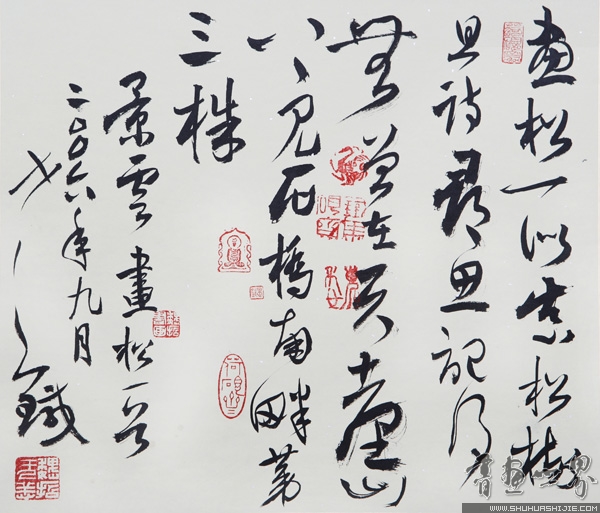 畫松一似真松樹
且待尋思記得
無曾在天台山
上見石橋南畔第
三株
景雲畫松一首
二〇〇六年九月
書畫世界
WWW.SHUHUASHIJIE.COM